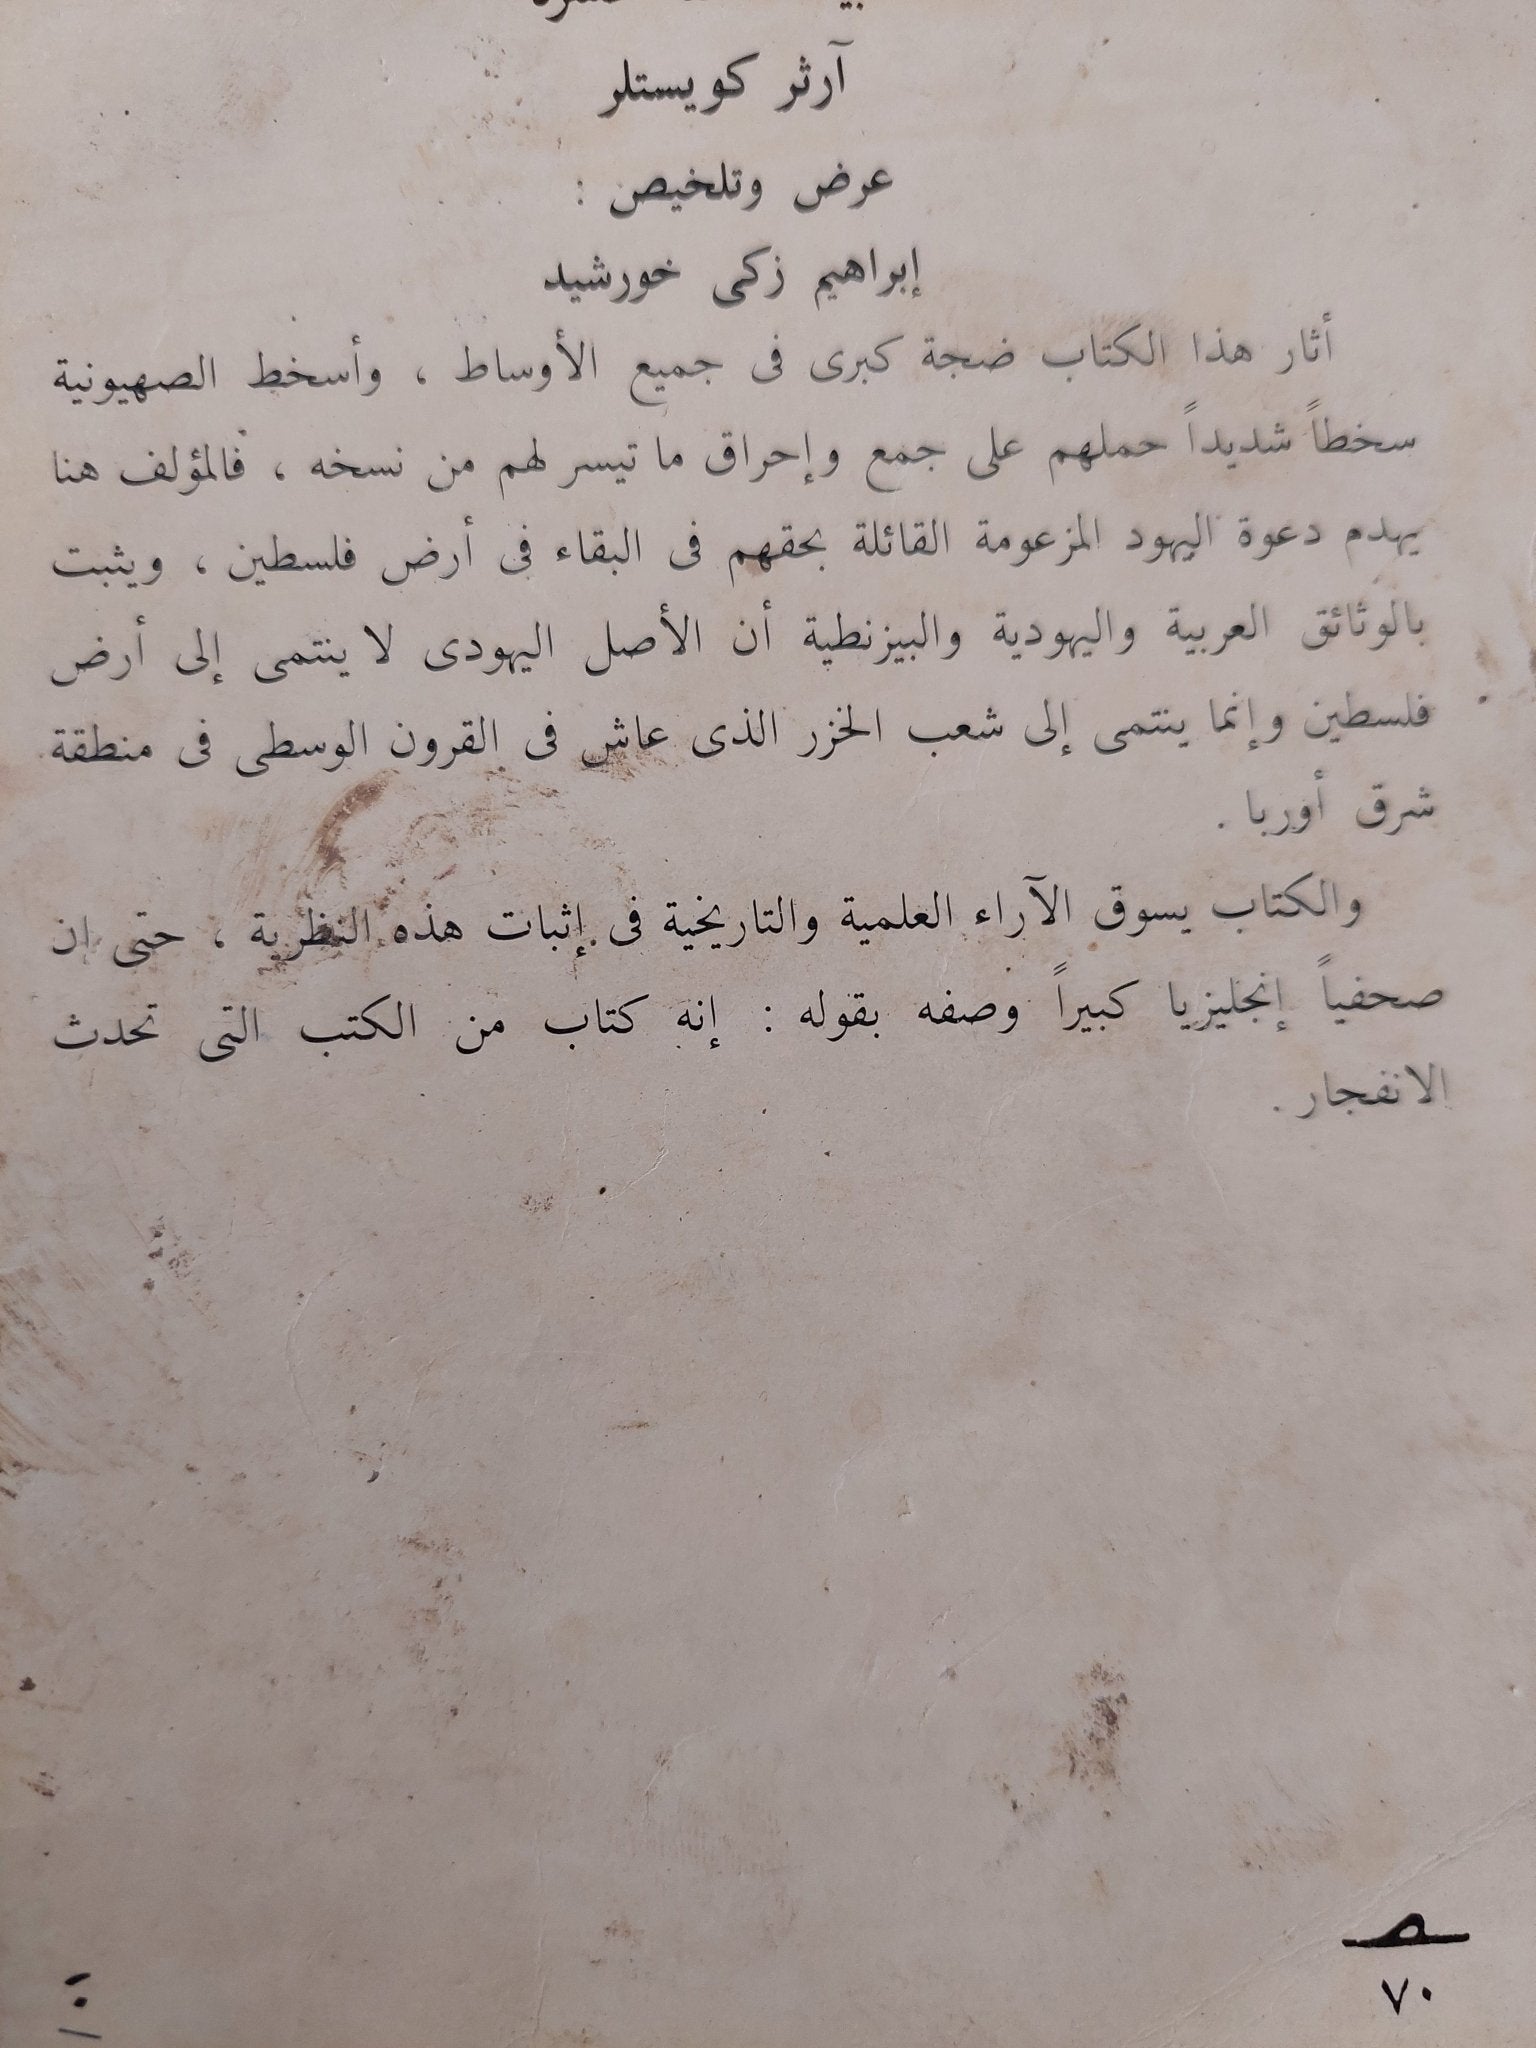 آرثر كويستلر
عرض وتلخيص :
إبراهيم زكى خورشيد
أثار هذا الكتاب ضجة كبرى فى جميع الأوساط ، وأسخط الصهيونية
سخطاً شديداً حملهم على جمع وإحراق ما تيسر لهم من نسخه ، فالمؤلف هنا
يهدم دعوة اليهود المزعومة القائلة بحقهم فى البقاء فى أرض فلسطين ، ويثبت
بالوثائق العربية واليهودية والبيزنطية أن الأصل اليهودى لا ينتمى إلى أرض
فلسطين وإنما ينتمى إلى شعب الخزر الذى عاش فى القرون الوسطى فى منطقة
شرق أوربا .
والكتاب يسوق الآراء العلمية والتاريخية فى إثبات هذه النظرية ، حتى ان
صحفياً إنجليزيا كبيراً وصفه بقوله : إنه كتاب من الكتب التى تحدث
الانفجار .
٧٠